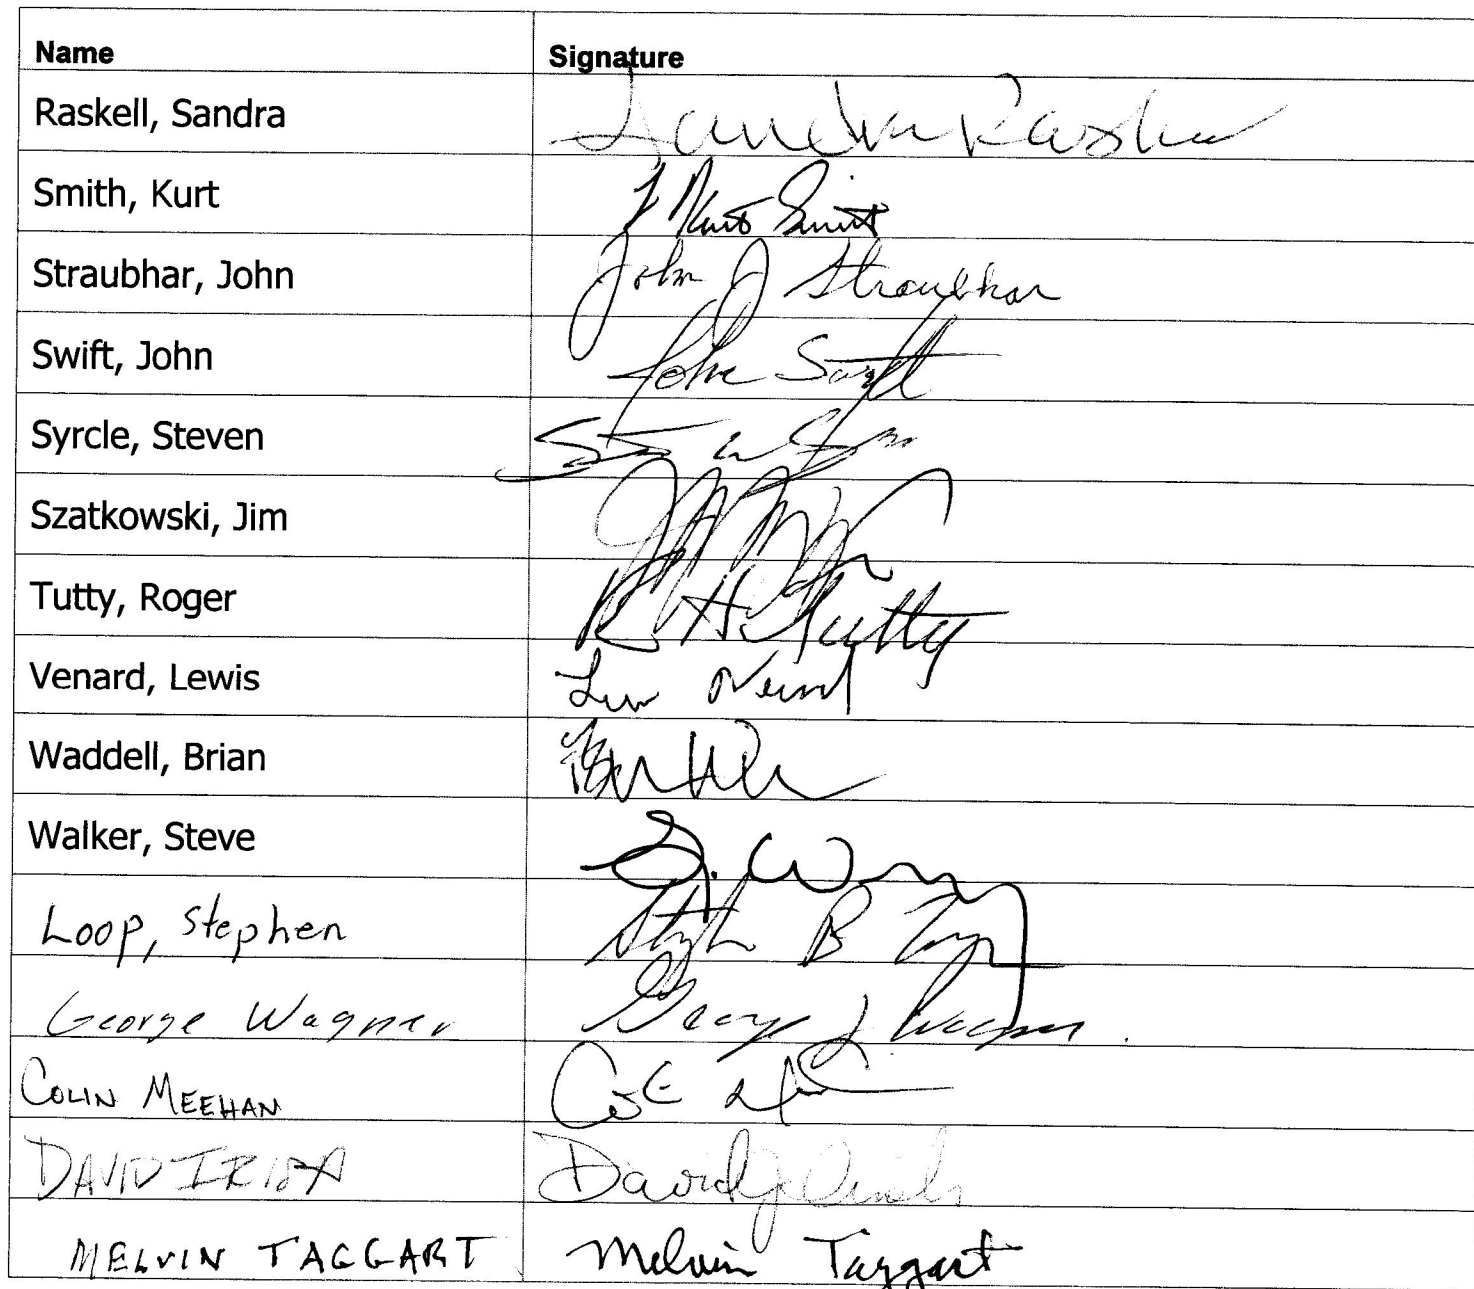 Name Signature
Raskell, Sandra Sandra Raske
Smith, Kurt Kurt Smith
Straubhar, John John J Straubhar
Swift, John John Swift
Syrcle, Steven
Szatkowski, Jim
Tutty, Roger R H Tutty
Venard, Lewis
Waddell, Brian
Walker, Steve
Loop, Stephen Stephen B Loop
George Wagner George J. Wagner
COLIN MEEHAN
DAVID David J
MELVIN TAGGART Melvin Taggart